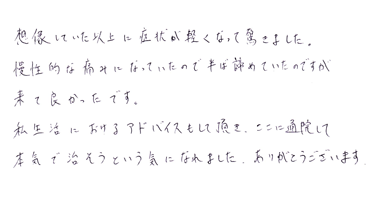 想像していた以上に症状が軽くなって驚きました。
慢性的な痛みになっていたので半ば諦めていたのですが
来て良かったです。
私生活におけるアドバイスもして頂き、ここに通院して
本気で治そうという気になれました。ありがとうございます。